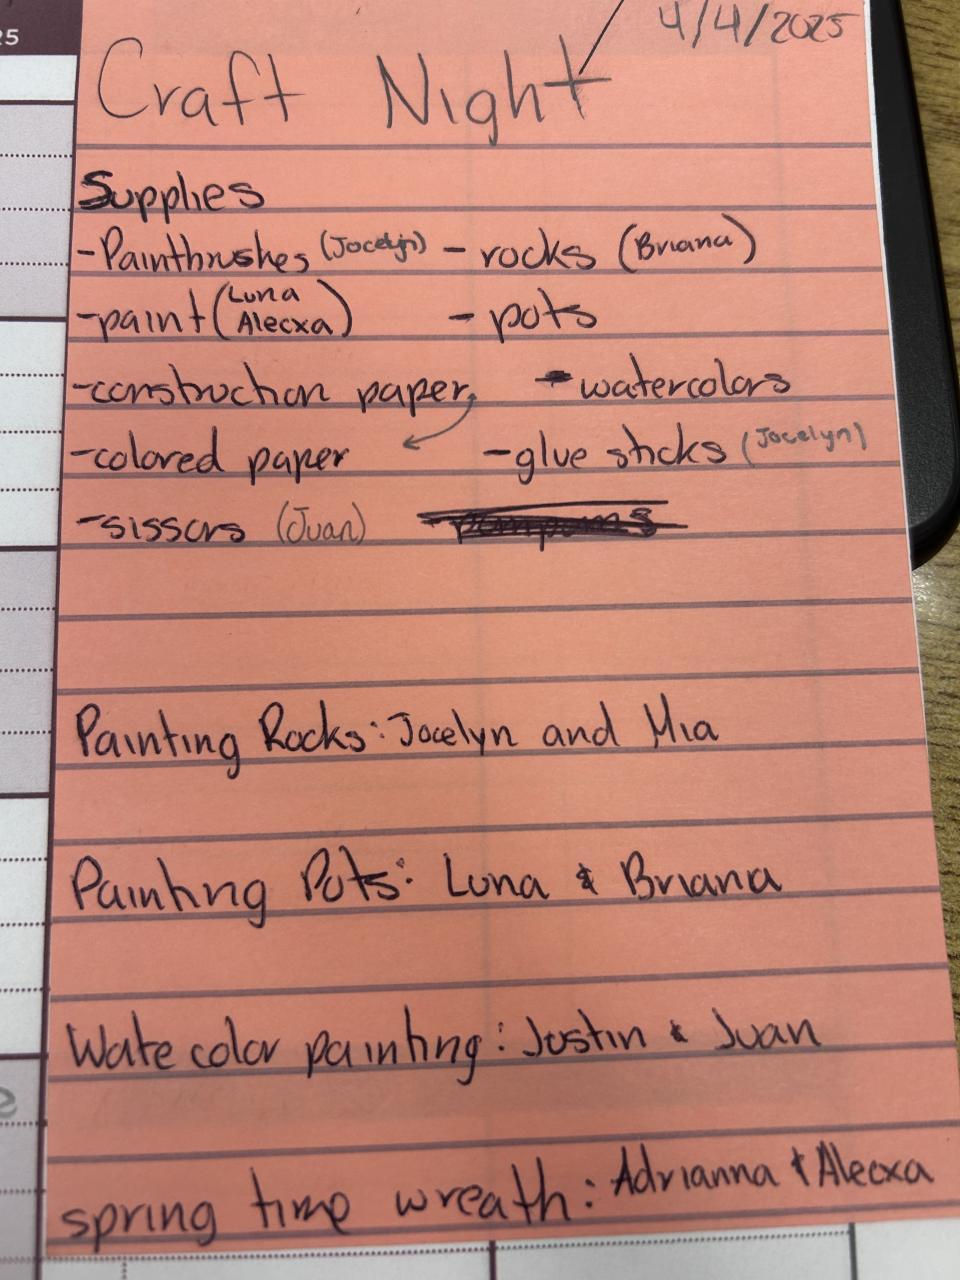 25
4/4/2025
Craft Night
Supplies
-Paintbrushes (Jocelyn) - rocks (Briana)
-paint (Luna Alecxa) - pots
-construction paper, - watercolors
-colored paper -glue sticks (Jocelyn)
-sissors (Juan) -pompoms
Painting Rocks: Jocelyn and Mia
Painting Pots: Luna & Briana
Wate color painting: Justin & Juan
spring time wreath: Adrianna & Alecxa